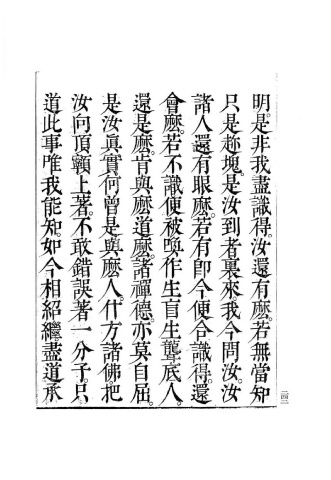 明。是非我盡識得。汝還有麽。若無當知
只是趂塊。是汝到者裏來。我今問汝。汝
諸人還有眼麽。若有即今便合識得。還
會麽。若不識便被喚作生盲生聾底人。
還是麽。肯與麽道麽。諸禪德。亦莫自屈。
是汝眞實何曾是與麽人。什方諸佛把
汝向頂𩕳上著。不敢錯誤著一分子。只
道此事唯我能知。如今相紹繼盡道承
二四二